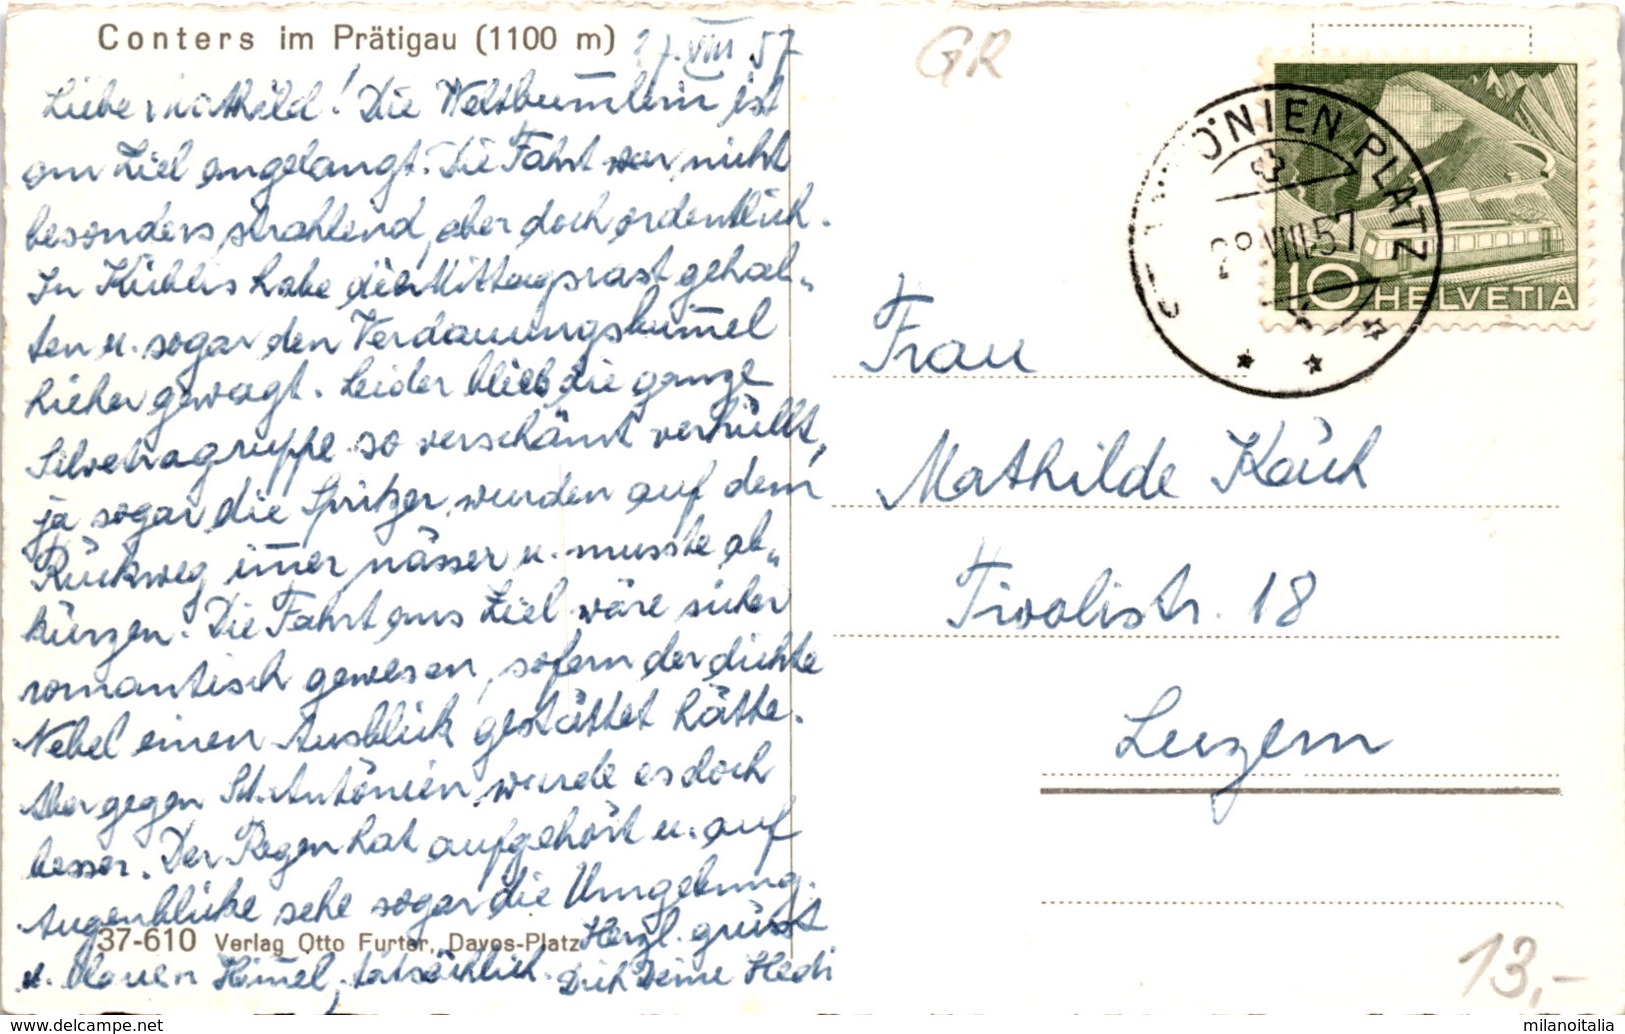 Conters im Prätigau (1100 m) 27.VIII 57
Liebe Mathild! Die Weltbum̄lerin ist
am Ziel angelangt. Die Fahrt war nicht
besonders strahlend, aber doch ordentlich.
In Küblis habe die Mittagsrast gehal„
ten u. sogar den Verdauungsbum̄el
hieher gewagt. Leider blieb die ganze
Silvetragruppe so verschämt verhüllt,
ja sogar die Spritzer wurden auf dem
Rückweg im̄er nässer u. musste ab„
kürzen. Die Fahrt ans Ziel wäre sicher
romantisch gewesen, sofern der dichte
Nebel einen Ausblick gestattet hätte.
Aber gegen St. Antönien wurde es doch
besser. Der Regen hat aufgehört u. auf
Augenblicke sehe sogar die Umgebung.
u. blauen Him̄el, tatsächlich.
Herzl. grüsst
Dich Deine Hedi
37-610 Verlag Otto Furter, Davos-Platz
GR
ÖNIEN PLATZ
28.VIII.57
10 HELVETIA
Frau
Mathilde Käch
Tivolistr. 18
Luzern
13,-
http://www.delcampe.net
milanoitalia